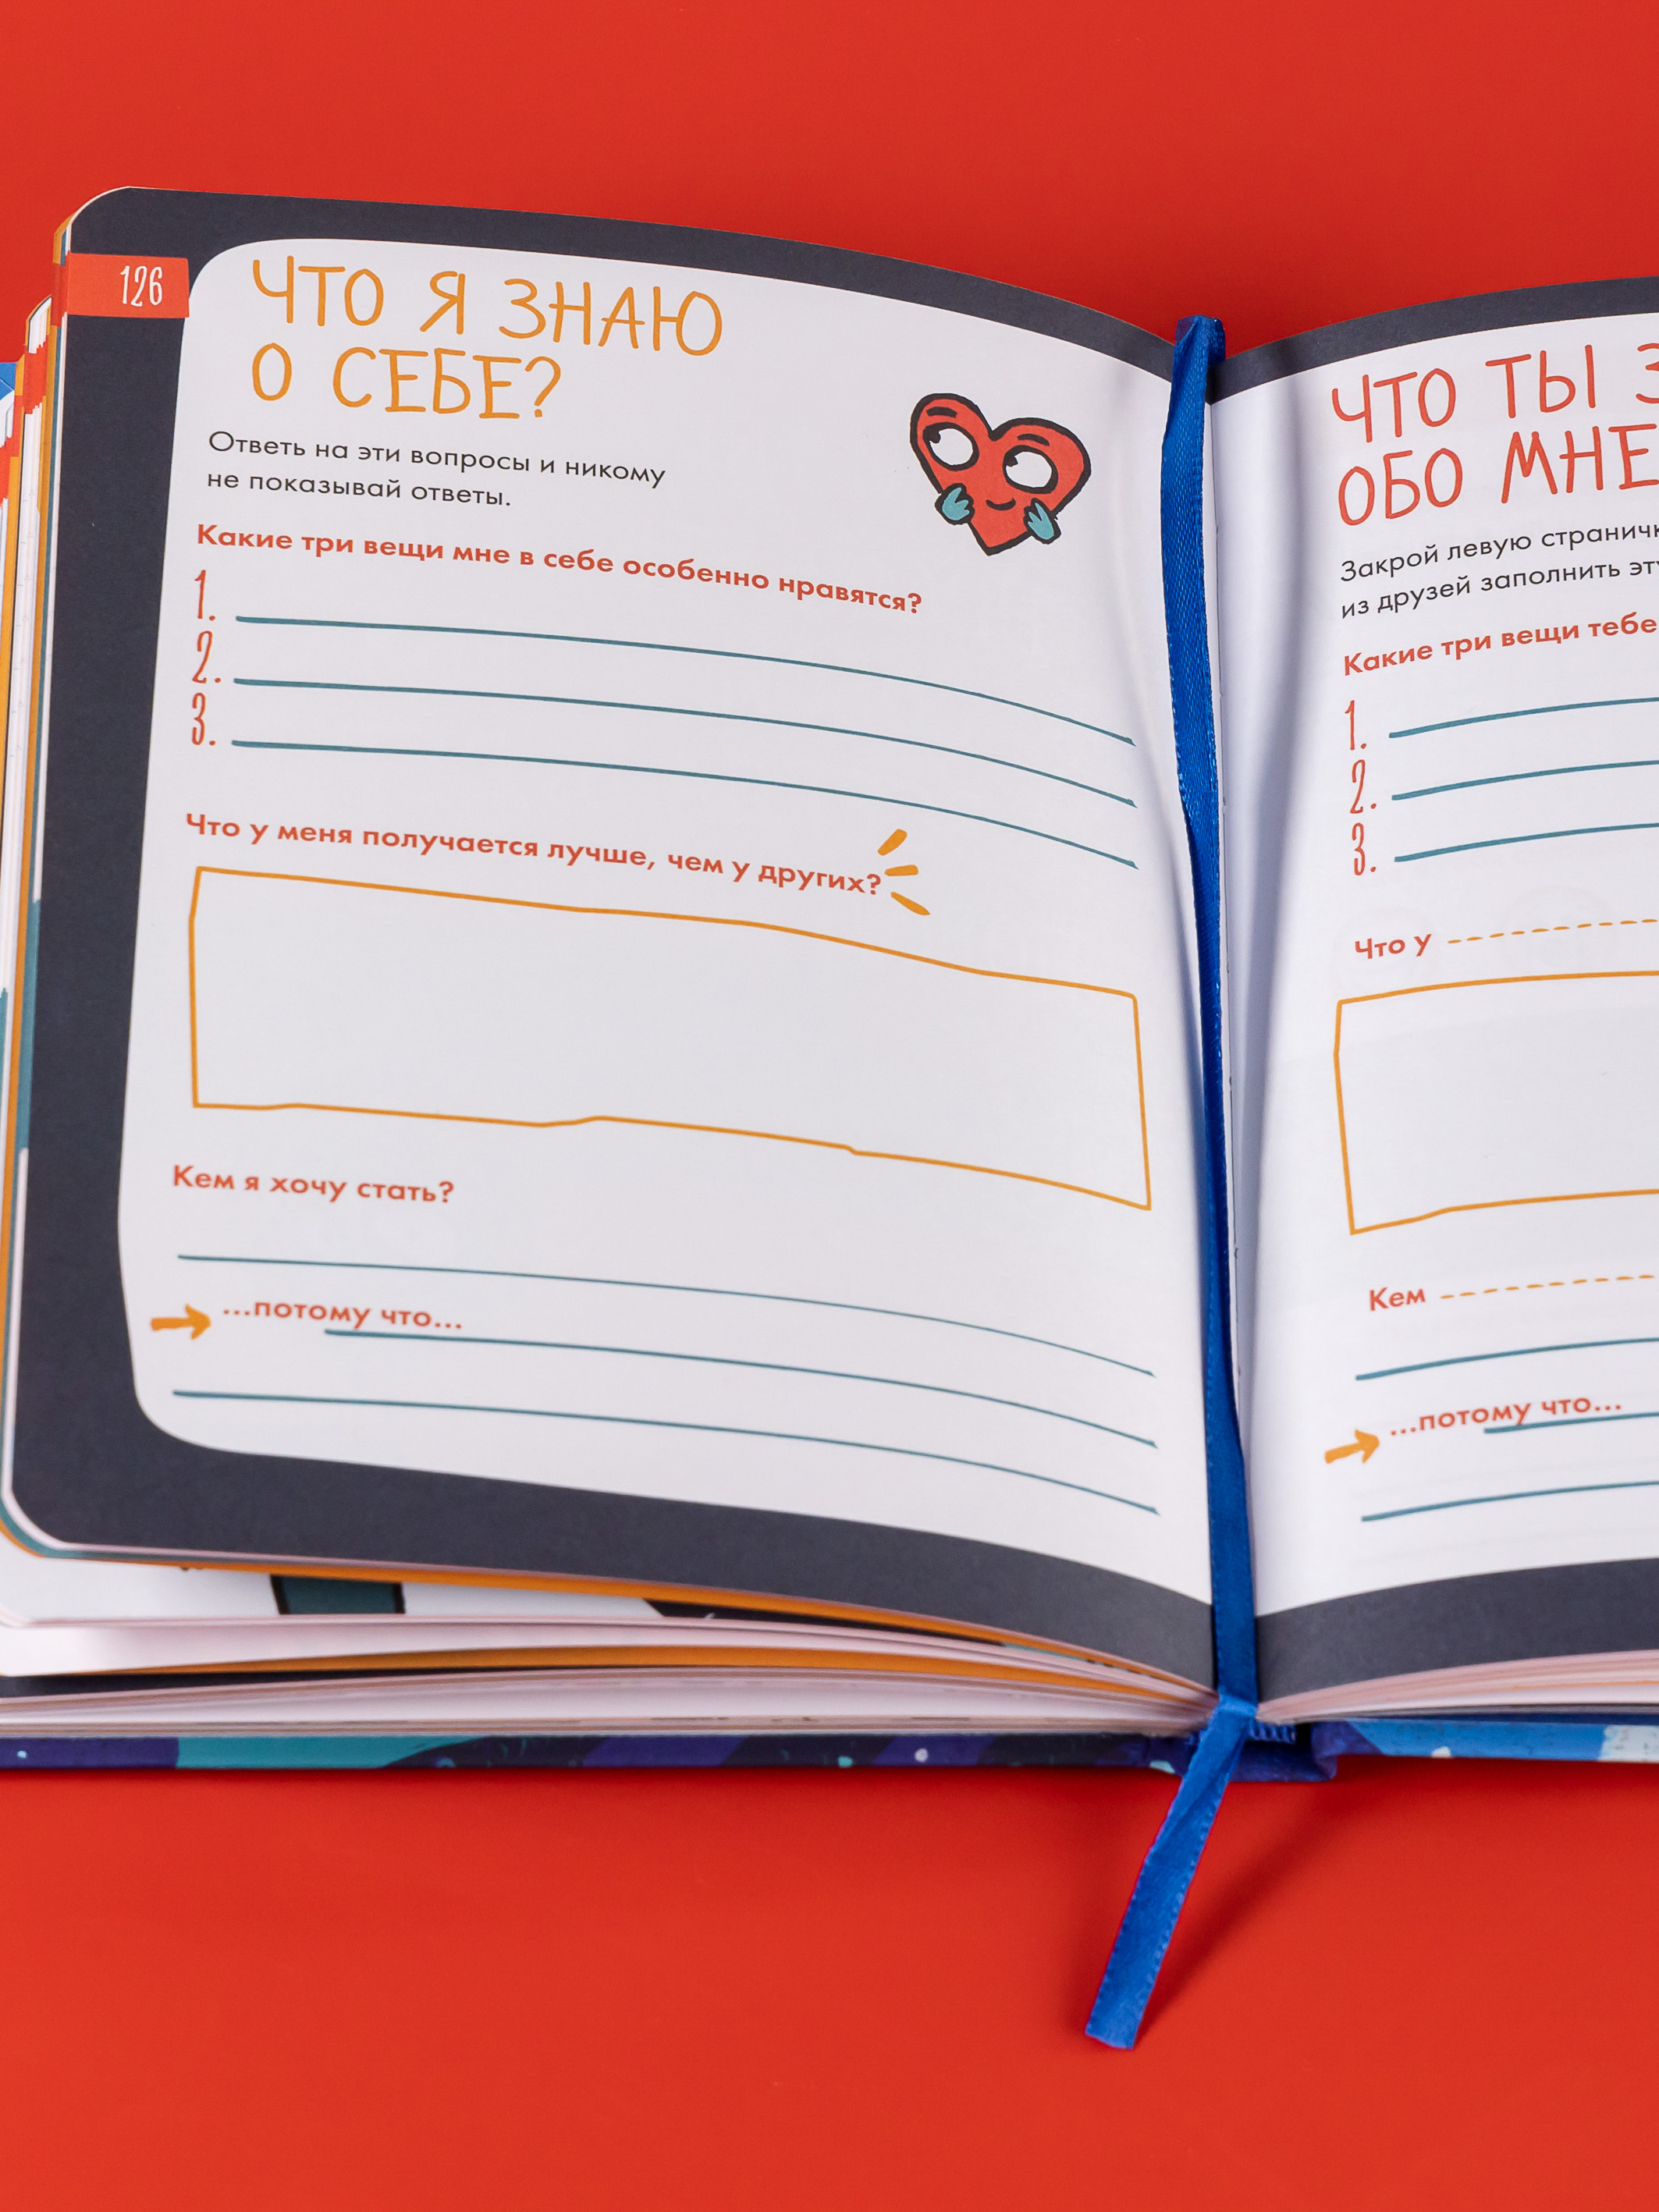 126
ЧТО Я ЗНАЮ
О СЕБЕ?
Ответь на эти вопросы и никому
не показывай ответы.
Какие три вещи мне в себе особенно нравятся?
1.
2.
3.
Что у меня получается лучше, чем у других?
Кем я хочу стать?
...потому что...
ЧТО ТЫ
ОБО МНЕ
Закрой левую
из друзей заполнить
Какие три вещи тебе
1.
2.
3.
Что у
Кем
...потому что...